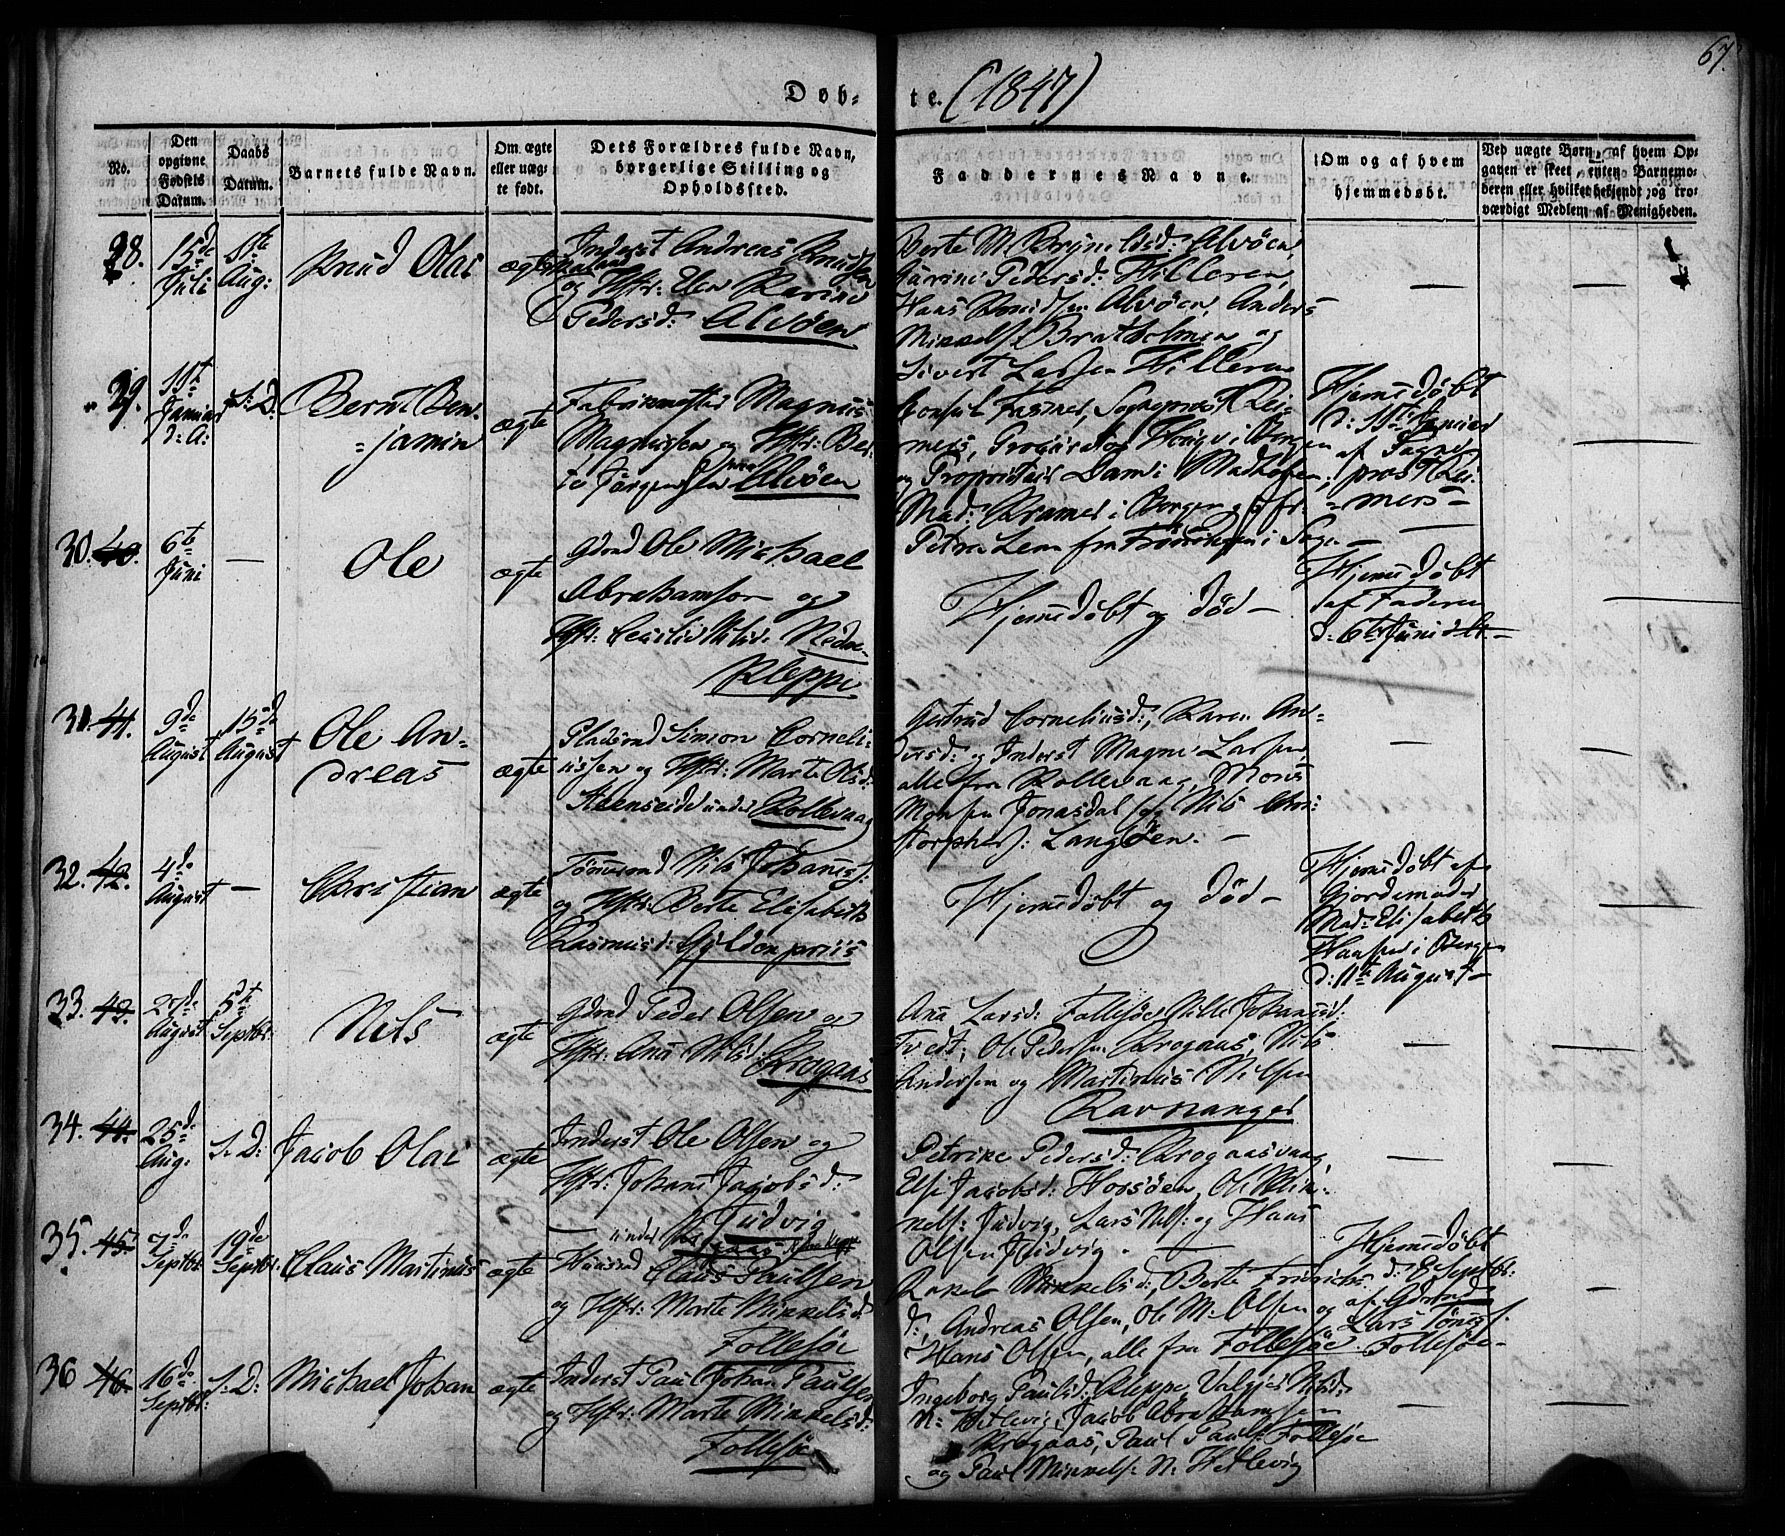 67.
Døb-te. (1847)
No.
Den opgivne Fødsels Datum.
Daabs Datum.
Barnets fulde Navn.
Om ægte eller uægte født.
Dets Forældres fulde Navn, borgerlige Stilling og Opholdssted.
Faddernes Navne.
Om og af hvem hjemmedøbt.
Ved uægte Børn, af hvem Opgaven er skeet, enten Barnemoderen eller hvilket bekjendt og troværdigt Medlem af Menigheden.
28.
15de Juli
Aug:
Knud Olai
ægte
Inderst Andreas Knudsen
og Hstr: Elen Karine
Pedersd: Alvøen
Berte M. Brÿnildsd: Alvøen,
Pedersd: Hilleren,
Haas Knudsen Alvøen, Anders
Bratholmen og
Sivert Larsen Hilleren
—
—
29.
11te Januar d: A:
S: D:
Bernt Ben-
jamin
ægte
Magnus
Magnussen og Hstr: Ber-
Alvøen
Consul Fasmer, Sogneprost Rei-
mers, Procurator i Bergen
og Proprietair Dam i
Mad: Kramer i Bergen og Jfr:
Petra Lem fra
Hjemedøbt
d: 11te Januar
af Sogne-
prost Rei-
mers —
—
30. 40.
6te Juni
—
Ole
ægte
Gdmd Ole Michael
Abrahamsen og
Hstr: Cecilie Nilsd: Nedre
Kleppe
Hjemedøbt og død —
Hjemedøbt
af Faderen
d: 6te Juni
—
31. 41.
9de August
15de August
Ole An-
dreas
ægte
Pladsmd Simon Corneli-
ussen og Hstr: Marte Olsd:
Steenseide under Kollevaag
Gertrud Corneliusd:, Karen An-
dersd: og Inderst Magne Larsen
alle fra Kollevaag, Mons
Monsen Jonasdal og Nils Chri-
storphers: Langøen. —
—
—
32. 42.
4de August
—
Christian
ægte
Nils Johanes:
og Hstr: Berte Elisabeth
Rasmusd: Gÿldenpriis
Hjemedøbt og død —
Hjemedøbt af
Gjordemoder
Mad: Elisabeth
i Bergen
d: 11te August —
—
33. 43.
27de August
5te Septbr:
Nils
ægte
Gdmd Peder Olsen og
Hstr: Ana Nilsd: Krogaas
Ana Larsd: Follesøe Nille Johanisd:
Tvedt, Ole Pedersen Krogaas, Nils
Andersen og Martinus Nilsen
Ravnanger
—
—
34. 44.
25de Aug:
S: D:
Jacob Olai
ægte
Inderst Ole Olsen og
Hstr: Johane Jacobsd:
— Judvig
under Krogaas
Petrine Pedersd: Krogaasvaag,
Else Jacobsd: Horsøen, Ole Min-
nels: Judvig, Lars Nils: og Haas
Olsen Judvig. —
—
—
35. 45.
7de Septbr:
19de Septbr:
Claus Martinus
ægte
Huusmd Claus Paulsen
og Hstr: Marte Minkelsd:
Follesøe
Rakel Minkelsd:, Berte Fridrichs-
d:, Andreas Olsen, Ole M. Olsen og
Hans Olsen, alle fra Follesøe
Hjemedøbt
d: 8 Septbr:
af Gdmd
Lars Tønes:
Follesøe —
—
36 46.
16de Septbr:
S: D:
Michael Johan
ægte
Inderst Paul Johan Paulsen
og Hstr: Marte Minkelsd:
Follesøe
Ingeborg Paulsd: Kleppe, Valgjer Nilsd:
N: Hetlevig, Jacob Abrahamsen
Krogaas, Paul Pauls: Follesøe
og Paul Minkels: N: Hetlevig
—
—